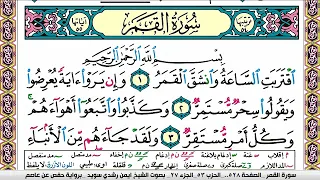 سُورَةُ القَمَرِ
بِسْمِ اللَّهِ الرَّحْمَٰنِ الرَّحِيمِ
ٱقْتَرَبَتِ ٱلسَّاعَةُ وَٱنشَقَّ ٱلْقَمَرُ ١ وَإِن يَرَوْاْ ءَايَةً يُعْرِضُواْ
وَيَقُولُواْ سِحْرٌ مُّسْتَمِرٌّ ٢ وَكَذَّبُواْ وَٱتَّبَعُوٓاْ أَهْوَآءَهُمْ ۚ
وَكُلُّ أَمْرٍ مُّسْتَقِرٌّ ٣ وَلَقَدْ جَآءَهُم مِّنَ ٱلْأَنۢبَآءِ
سورة القمر الصفحة ٥٢٨، الحزب ٥٣ الجزء ٢٧ بصوت الشيخ ايمن رشدي سويد برواية حفص عن عاصم